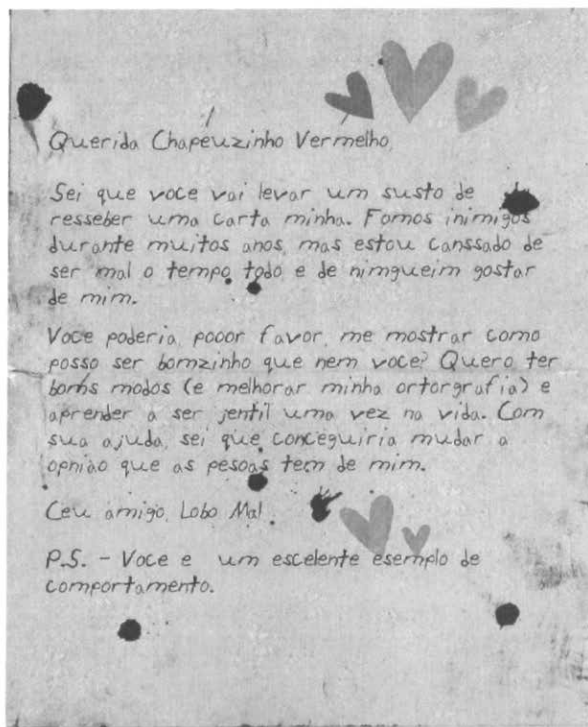 Querida Chapeuzinho Vermelho,
Sei que voce vai levar um susto de
resseber uma carta minha. Fomos inimigos
durante muitos anos, mas estou canssado de
ser mal o tempo todo e de nimgueim gostar
de mim.
Voce poderia, pooor favor, me mostrar como
posso ser bomzinho que nem voce? Quero ter
bohs modos (e melhorar minha ortorgrafia) e
aprender a ser jentil uma vez na vida. Com
sua ajuda, sei que conceguiria mudar a
opniao que as pesoas tem de mim.
Ceu amigo, Lobo Mal
P.S. - Voce e um escelente esemplo de
comportamento.